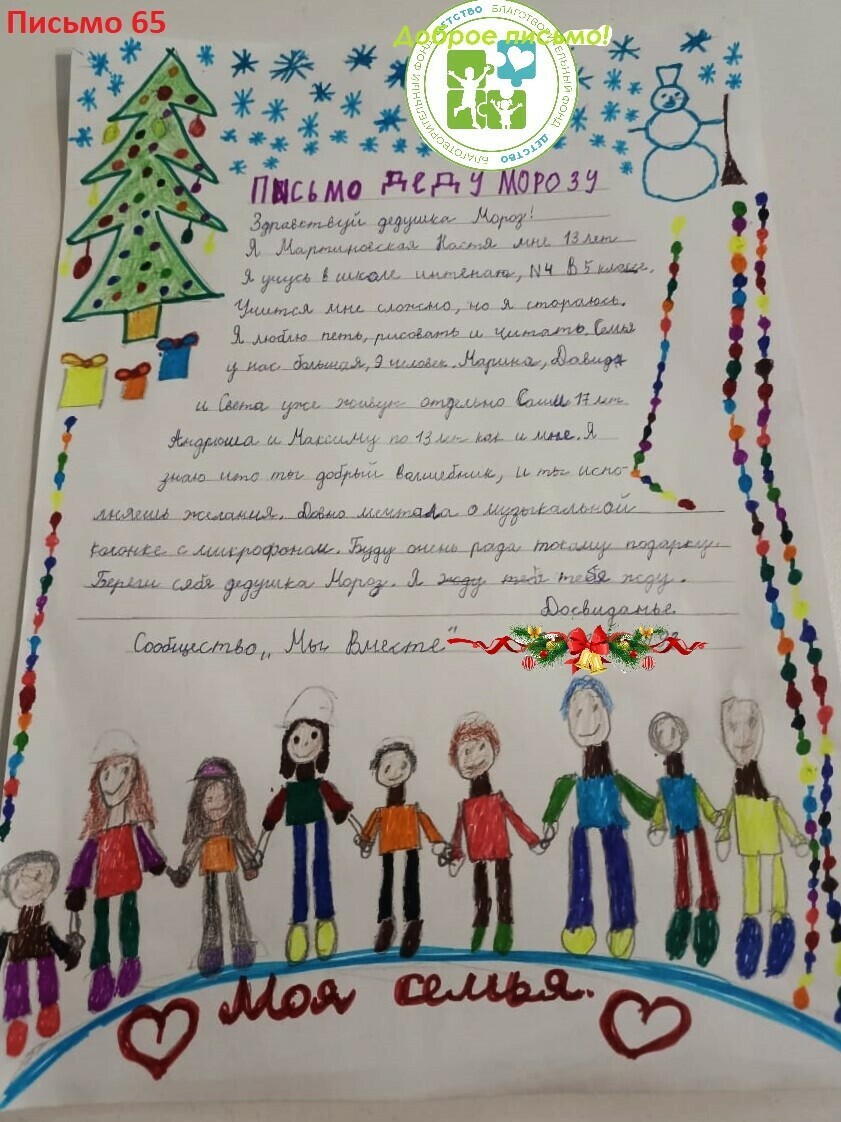 Письмо 65
Доброе письмо!
БЛАГОТВОРИТЕЛЬНЫЙ ФОНД ДЕТСТВО БЛАГОТВОРИТЕЛЬНЫЙ ФОНД ДЕТСТВО
ПИСЬМО ДЕДУ МОРОЗУ
Здравствуй дедушка Мороз!
Я Мартиновская Настя мне 13 лет
Я учусь в школе интенаю, N4 В 5 класе.
Учится мне сложно, но я стораюсь.
Я люблю петь, рисовать и читать. Семья
у нас большая, 9 человек. Марина, Давид
и Света уже живут отдельно Саши 17 лет
Андрюша и Максиму по 13 лет как и мне. Я
знаю што ты добрый валшебник, и ты испо-
лняешь желания. Давно мечтала о музыкальной
калонке с микрофоном. Буду очень рада такому подарку.
Береги сябя дедушка Мороз. Я жду тебя тебя жду.
Досвиданье
Сообщество „Мы Вместе"
Моя семья.